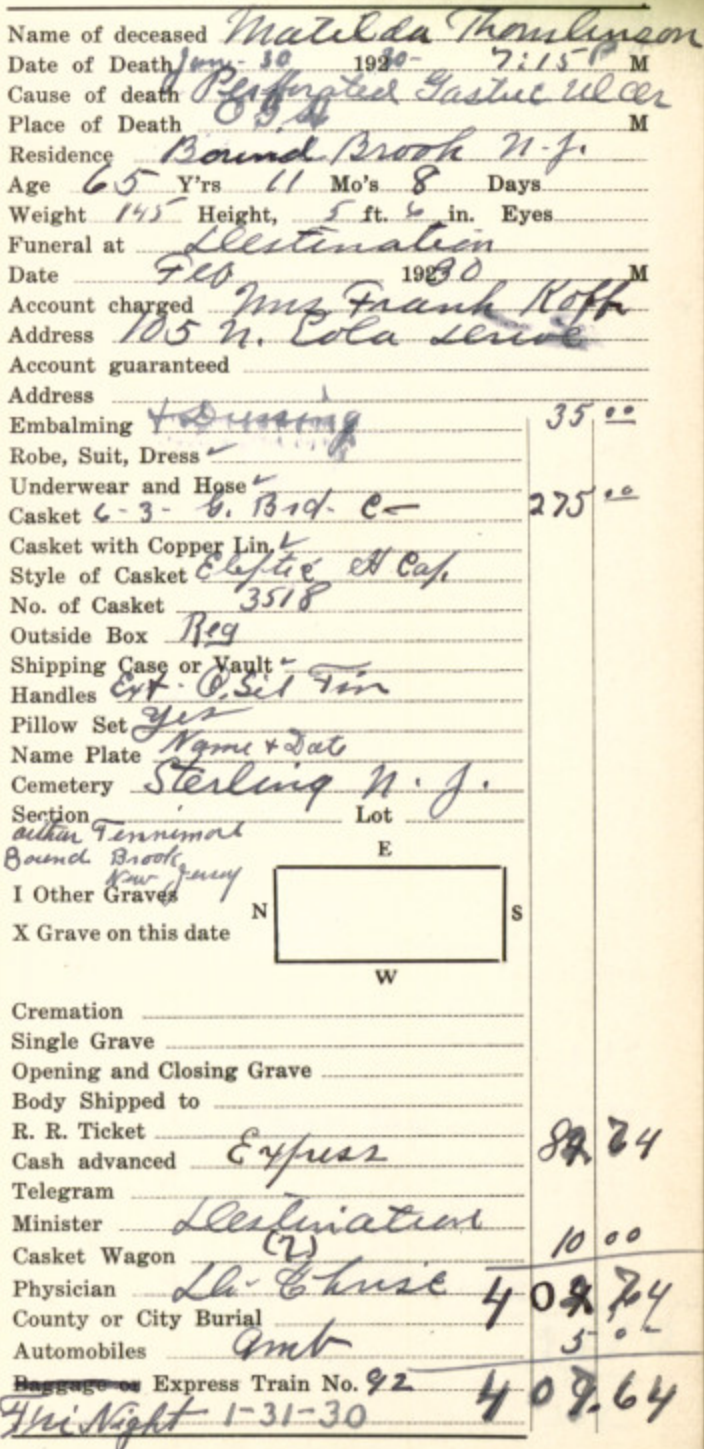 Name of deceased Matilda Thomlinson
Date of Death Jan - 30 1920 30 - 7:15 P M
Cause of death Perforated Gastric Ulcer
Place of Death M
Residence Bound Brook N. J.
Age 65 Y'rs 11 Mo's 8 Days
Weight 145 Height, 5 ft. 6 in. Eyes
Funeral at Destination
Date Feb 192 30 M
Account charged Mrs Frank Koff
Address 105 N. Eola Drive
Account guaranteed
Address
Embalming + Dressing 35 00
Robe, Suit, Dress ✓
Underwear and Hose ✓
Casket 6 - 3 - Brd. C 275 00
Casket with Copper Lin. ✓
Style of Casket H Cap.
No. of Casket 3518
Outside Box Reg
Shipping Case or Vault ✓
Handles Ext - O. Sil Fin
Pillow Set yes
Name Plate Name + Date
Cemetery Sterling N. J.
Section Lot
Tennimore
Bound Brook,
New Jersey
E
I Other Graves
N S
X Grave on this date
W
Cremation
Single Grave
Opening and Closing Grave
Body Shipped to
R. R. Ticket
Cash advanced Express 64
Telegram
Minister Destination
Casket Wagon (2) 10 00
Physician Dr.
County or City Burial
Automobiles Amb 5 00
Baggage or Express Train No. 92
Fri Night 1-31-30